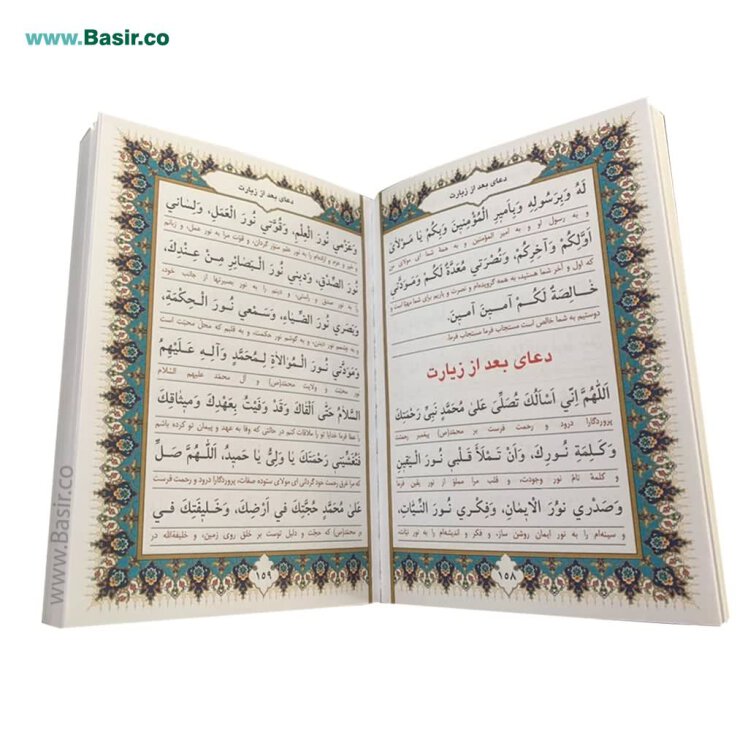 www.Basir.co
دعای بعد از زیارت
لَهُ وَبِرَسُولِهِ وَبِاَمیرِ الْمُؤْمِنینَ وَبِکُمْ یا مَوْلایَ
و به رسول او و به امیر المومنین و به همه شما ای مولای من
اَوَّلِکُمْ وَآخِرِکُمْ، وَنُصْرَتی مُعَدَّةٌ لَکُمْ وَمَوَدَّتی
که اول و آخر شما هستید، به همه گرویده‌ام و نصرت و یاریم برای شما مهیا است و
خالِصَةٌ لَکُمْ آمینَ آمینَ.
دوستیم به شما خالص است مستجاب فرما مستجاب فرما.
دعای بعد از زیارت
اَللّهُمَّ اِنّی اَسْاَلُکَ اَنْ تُصَلِّیَ عَلی مُحَمَّدٍ نَبِیِّ رَحْمَتِکَ
پروردگارا درود و رحمت فرست بر محمّد(ص) پیغمبر رحمتت
وَکَلِمَةِ نُورِکَ، وَاَنْ تَمْلَاَ قَلْبی نُورَ الْیَقینِ
و کلمهٔ تامّ نور وجودت، و قلب مرا مملو از نور یقین فرما
وَصَدْری نُورَ الْایمانِ، وَفِکْری نُورَ النِّیّاتِ،
و سینه‌ام را به نور ایمان روشن ساز، و فکر و اندیشه‌ام را به نور نیّات،
۱۵۸
دعای بعد از زیارت
وَعَزْمی نُورَ الْعِلْمِ، وَقُوَّتی نُورَ الْعَمَلِ، وَلِسانی
و عزم و اراده‌ام را به نور علم منوّر گردان، و قوّت مرا به نور عمل، و زبانم
نُورَ الصِّدْقِ، وَدینی نُورَ الْبَصائِرِ مِنْ عِنْدِکَ،
را به نور صدق و راستی، و دینم را به نور بصیرتها از جانب خود،
وَبَصَری نُورَ الضِّیاءِ، وَسَمْعی نُورَ الْحِکْمَةِ،
و به گوشم نور حکمت، و به قلبم که محل محبّت است
وَمَوَدَّتی نُورَ الْمُوالاةِ لِمُحَمَّدٍ وَآلِهِ عَلَیْهِمُ
نور محبّت و ولایت محمّد(ص) و آل محمّد علیهم السّلام
السَّلامُ حَتّی اَلْقاکَ وَقَدْ وَفَیْتُ بِعَهْدِکَ وَمیثاقِکَ
را عطا فرما خدایا تو را ملاقات کنم در حالتی که وفا به عهد و پیمان تو کرده باشم
فَتُغَشِّیَنی رَحْمَتُکَ یا وَلِیُّ یا حَمیدُ، اَللّهُمَّ صَلِّ
که مرا غرق رحمت خود گردانی ای مولای ستوده صفات، پروردگارا درود و رحمت فرست
عَلی مُحَمَّدٍ حُجَّتِکَ فی اَرْضِکَ، وَخَلیفَتِکَ فی
بر محمّد(ص) که حجّت و دلیل توست بر خلق روی زمین، و خلیفةالله در
۱۵۹
www.Basir.co